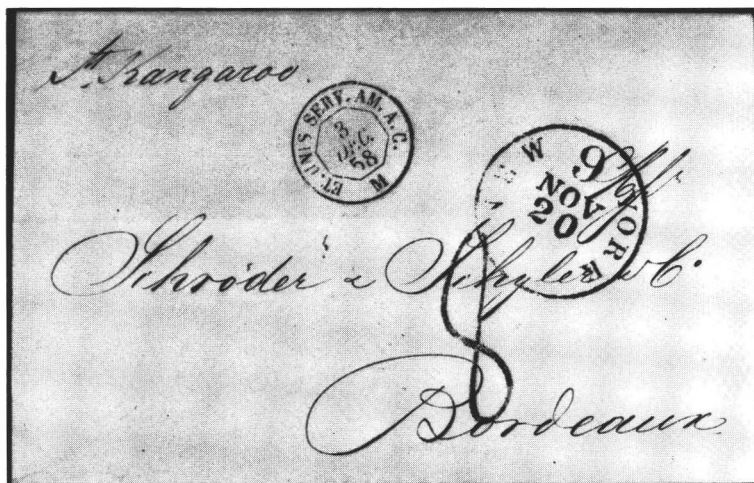 St. Kangaroo.
ET. UNIS SERV. AM. A.C.
3
DEC.
58
M
NEW YORK
9
NOV
20
Schröder & Schyler & C.
8
Bordeaux